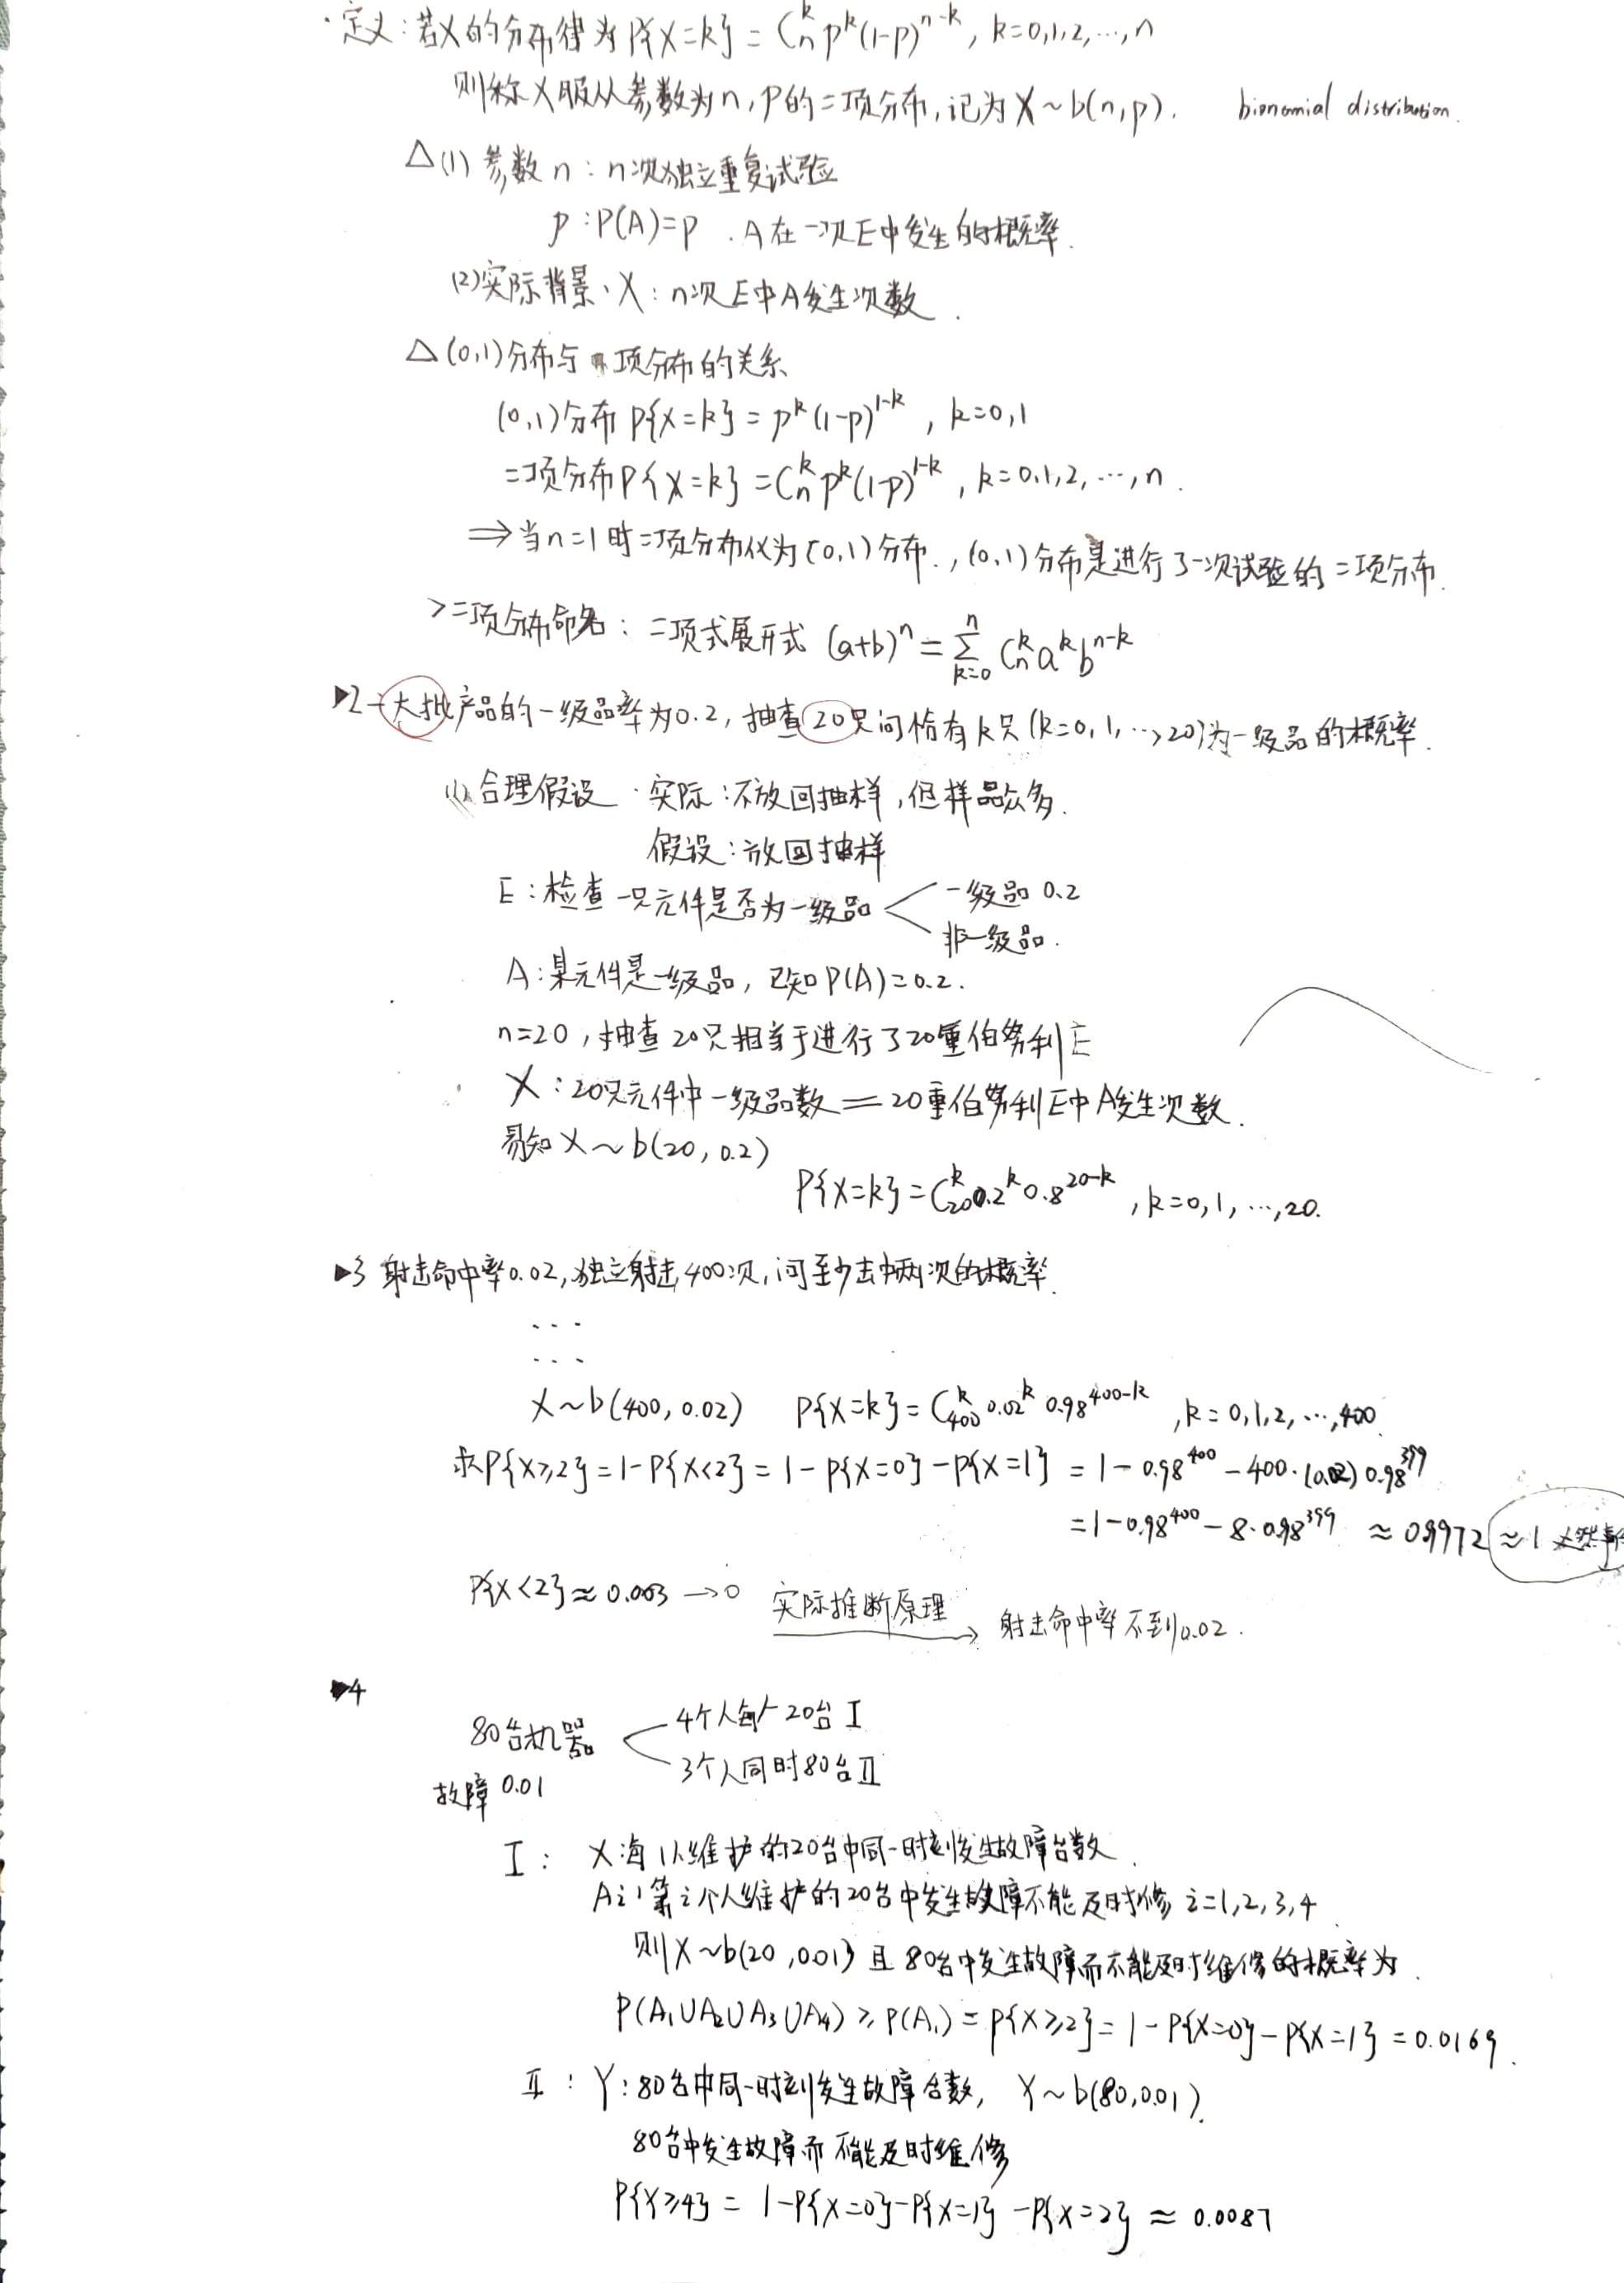 ·定义:若X的分布律为P{X=k} = C_n^k p^k(1-p)^{n-k}, k=0,1,2,…,n
则称X服从参数为n,p的二项分布,记为X~b(n,p). bionomial distribution.
△(1) 参数 n : n次独立重复试验
p : P(A)=p . A在一次E中发生的概率.
(2)实际背景、X : n次E中A发生次数.
△(0,1)分布与 项分布的关系
(0,1)分布 P{X=k} = p^k (1-p)^{1-k} , k=0,1
二项分布P{X=k} = C_n^k p^k(1-p)^{1-k} , k=0,1,2,…,n.
⇒当n=1时二项分布仪为(0,1)分布.,(0,1)分布是进行了一次试验的二项分布.
>二项分布命名: 二项式展开式 (a+b)^n = ∑_{k=0}^n C_n^k a^k b^{n-k}
▶2 一大批产品的一级品率为0.2, 抽查20只问恰有k只(k=0,1,…,20)为一级品的概率.
(1) 合理假设 · 实际:不放回抽样,但样品众多.
假设:放回抽样
E : 检查一只元件是否为一级品 < 一级品 0.2
非一级品.
A:某元件是一级品, 已知P(A)=0.2.
n=20 , 抽查20只相当于进行了20重伯努利E
X : 20只元件中一级品数 = 20重伯努利E中A发生次数.
易知X~b(20, 0.2)
P{X=k} = C_20^k 0.2^k 0.8^{20-k} , k=0,1, …,20.
▶3 射击命中率0.02,独立射击400次,问至少击中两次的概率.
...
...
X~b(400, 0.02) P{X=k} = C_400^k 0.02^k 0.98^{400-k} , k=0,1,2, …,400.
求P{X≥2} = 1-P{X<2} = 1-P{X=0}-P{X=1} = 1-0.98^400 - 400·(0.02) 0.98^399
= 1-0.98^400 - 8·0.98^399 ≈ 0.9972 ≈1 必然事件
P{X<2}≈0.003 →0 实际推断原理 → 射击命中率不到0.02.
▶4
80台机器 < 4个人每人20台 I
3个人同时80台 II
故障 0.01
I : X:每1人维护的20台中同一时刻发生故障台数.
Ai:第i个人维护的20台中发生故障不能及时修 i=1,2,3,4
则X~b(20,0.01) 且 80台中发生故障而不能及时维修的概率为.
P(A1∪A2∪A3∪A4) ≥ P(A1) = P{X≥2} = 1-P{X=0}-P{X=1} = 0.0169.
II : Y:80台中同一时刻发生故障台数, Y~b(80,0.01).
80台中发生故障而不能及时维修
P{Y≥4} = 1-P{X=0}-P{X=1}-P{X=2} ≈ 0.0087